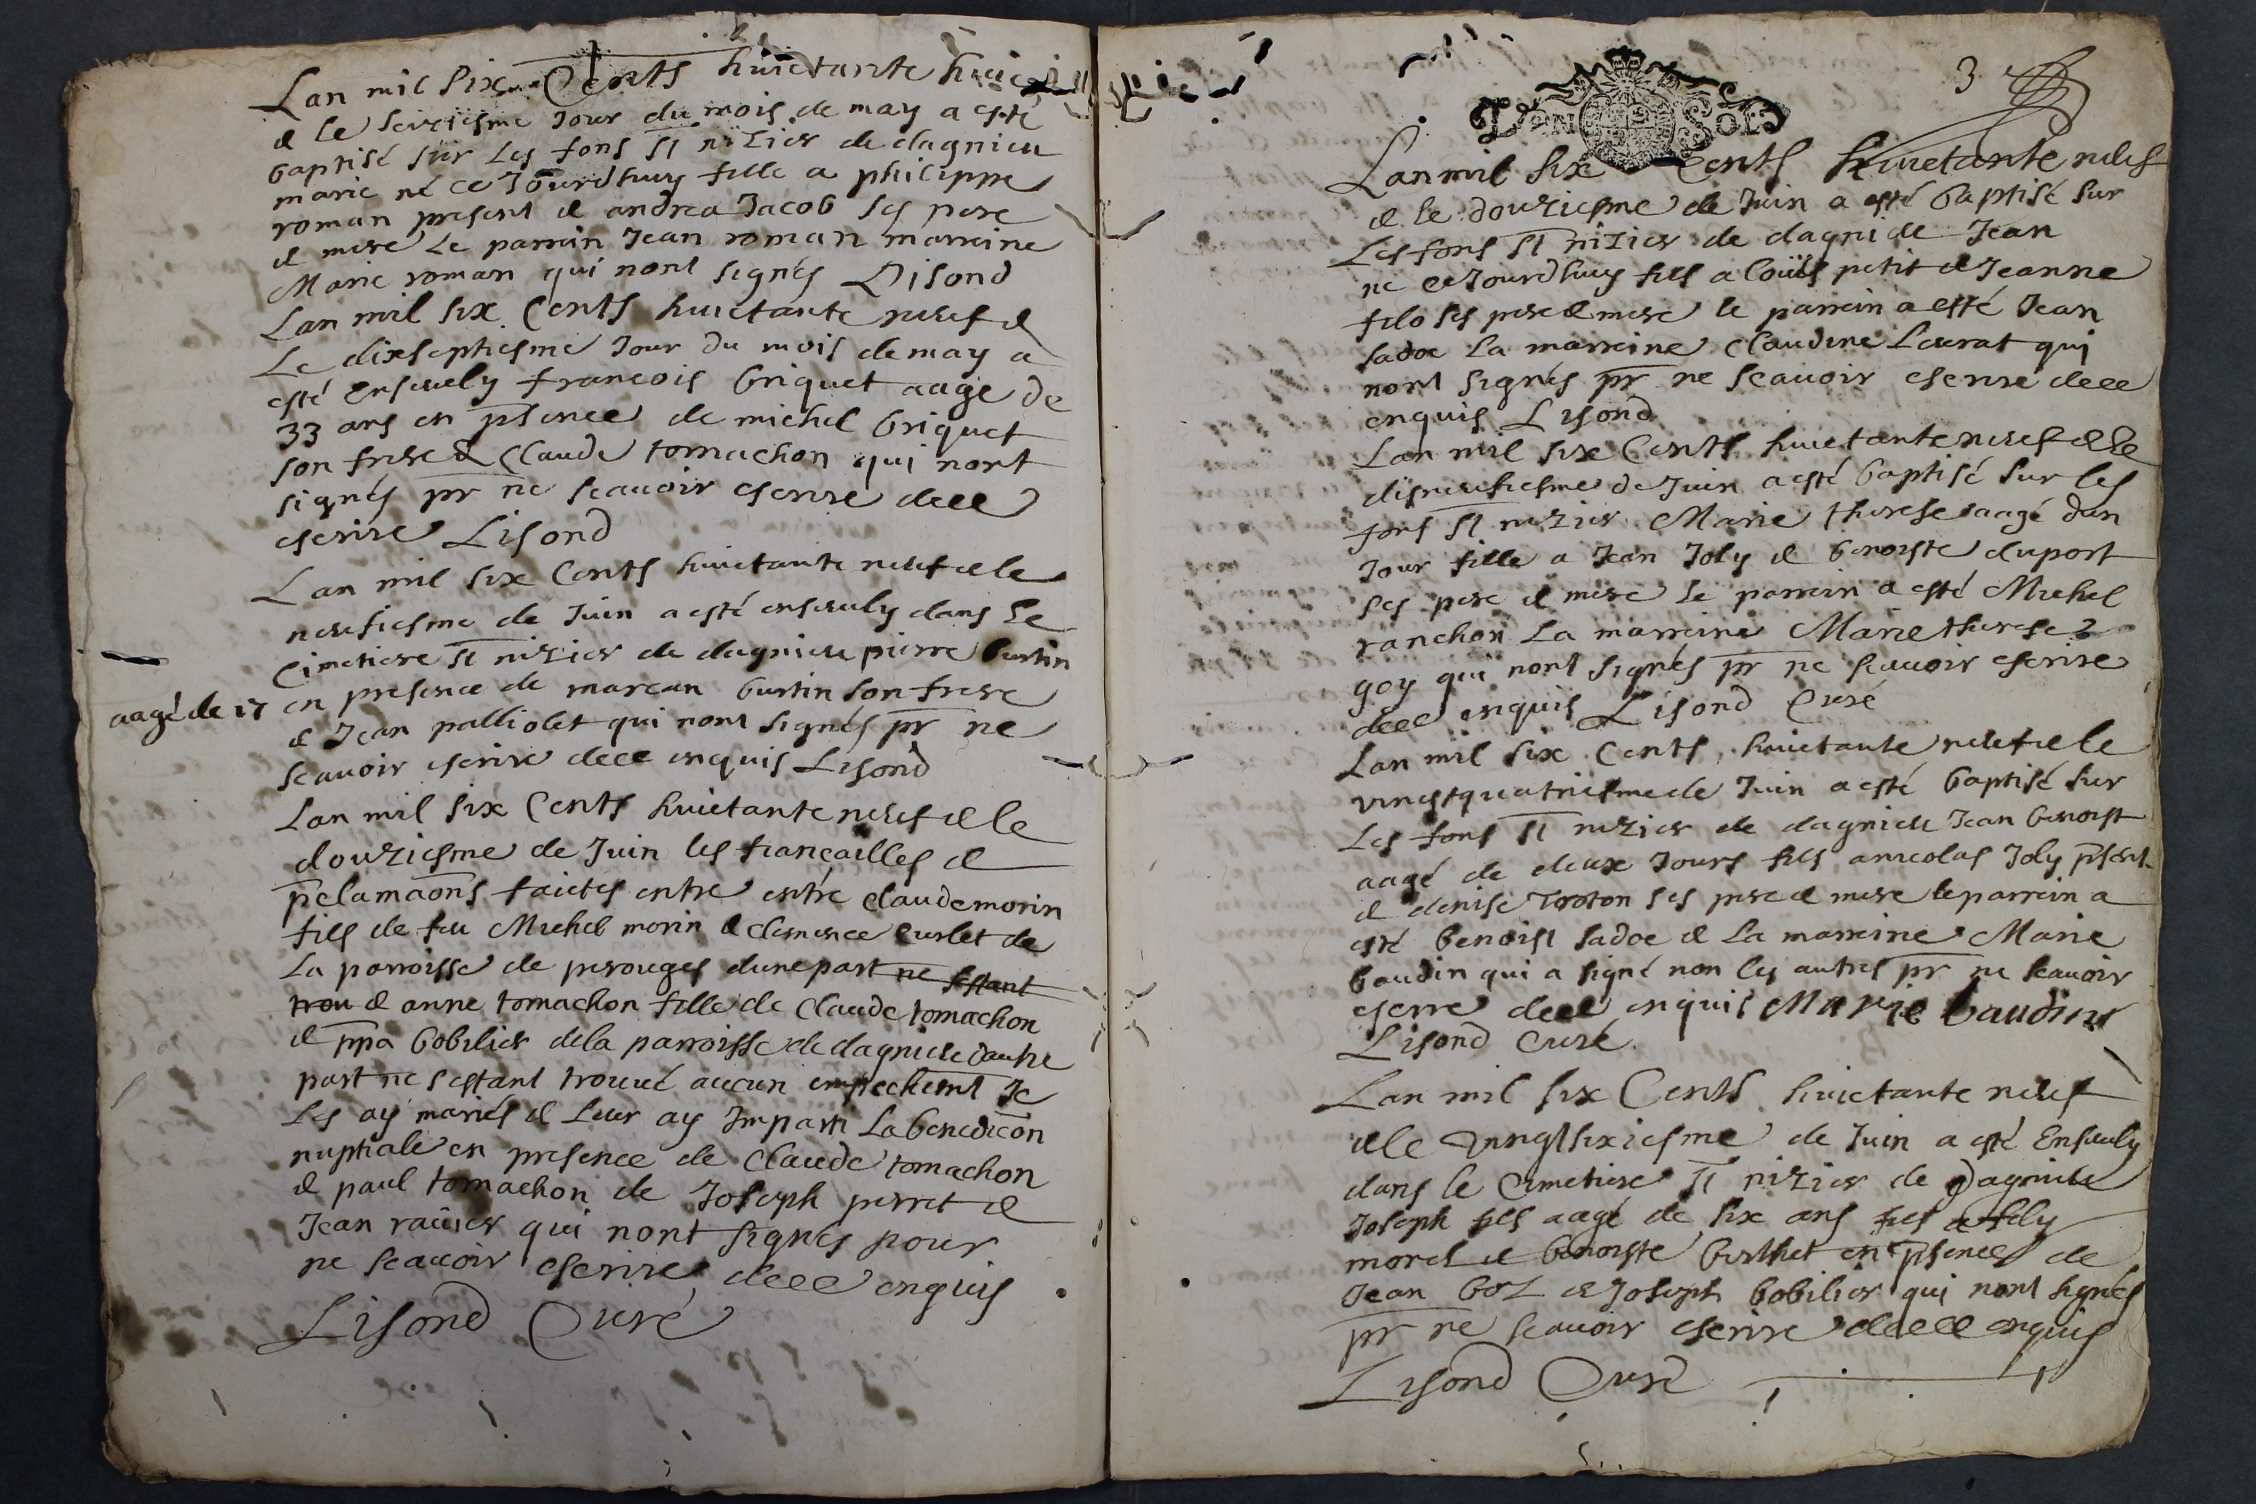 Lan mil six Cents huictante huic
& le seiziesme Jour du mois de may a esté
baptisé sur les fons St nizier de dagnieu
marie né ce Jourdhuy fille a philippe
roman present & andrea Jacob ses pere
& mere le parrin Jean roman marreine
Marie roman qui nont signés Lisond
Lan mil six Cents huictante neuf &
Le dixseptiesme Jour du mois de may a
esté Ensevely francois briquet aagé de
33 ans en psence de michel briquet
son frere & Claude tomachon qui nont
signés pr ne scavoir escrire de ce
escrire Lisond
Lan mil six Cents huictante neuf & le
neufiesme de Juin a esté ensevely dans le
Cimetiere St nizier de dagnieu pierre burtin
aagé de 17 en presence de burtin son frere
& Jean palliolet qui nont signés pr ne
scavoir escrire de ce enquis Lisond
Lan mil six Cents huictante neuf & le
douziesme de Juin les fiançailles &
pclamaons faictes entre entre Claude morin
fils de feu Michel morin & clemence curlet de
La parroisse de perouges dune part ne sestant
trou & anne tomachon fille de Claude tomachon
& ppa bobilier de la parroisse de dagnieu dautre
part ne sestant trouvé aucun empechemt Je
Les ay mariés & Leur ay Imparti La benedicon
nuptiale en presence de Claude tomachon
& paul tomachon de Joseph perret &
Jean ravier qui nont signés pour
ne scavoir escrire de ce enquis
Lisond Curé
3
Lan mil six Cents huictante neuf
& le douziesme de Juin a esté baptisé sur
Les fons St nizier de Jean
né ce Jourdhuy fils a Louis petit & Jeanne
filo ses pere & mere le parrein a esté Jean
sadoc La marreine Claudine Leurat qui
nont signés pr ne scavoir escrire de ce
enquis Lisond
Lan mil six Cents huictante neuf & le
disneufiesme de Juin a esté baptisé sur les
fons St nizier Marie therese aagé dun
Jour fille a Jean Joly & benoiste duport
ses pere & mere le parrein a esté Michel
ranchon La marreine Marie therese
goy qui nont signés pr ne scavoir escrire
de ce enquis Lisond Curé
Lan mil six Cents huictante neuf & le
vinestquatriesme de Juin a esté baptisé sur
Les fons St nizier de dagnieu Jean benoist
aagé de deux Jours fils a nicolas Joly psent
& denise ses pere & mere le parrein a
esté benoist sadoc & La marreine Marie
baudin qui a signé non les autres pr ne scavoir
de ce enquis Marie baudin
Lisond Curé
Lan mil six Cents huictante neuf
& le vingtsixiesme de Juin a esté Ensevely
dans le Cimetiere St nizier de Dagnieu
Joseph fils aagé de six ans fils a fely
morel & benoiste berthet en psence de
Jean boz & Joseph bobilier qui nont signés
pr ne scavoir escrire de ce enquis
Lisond Curé